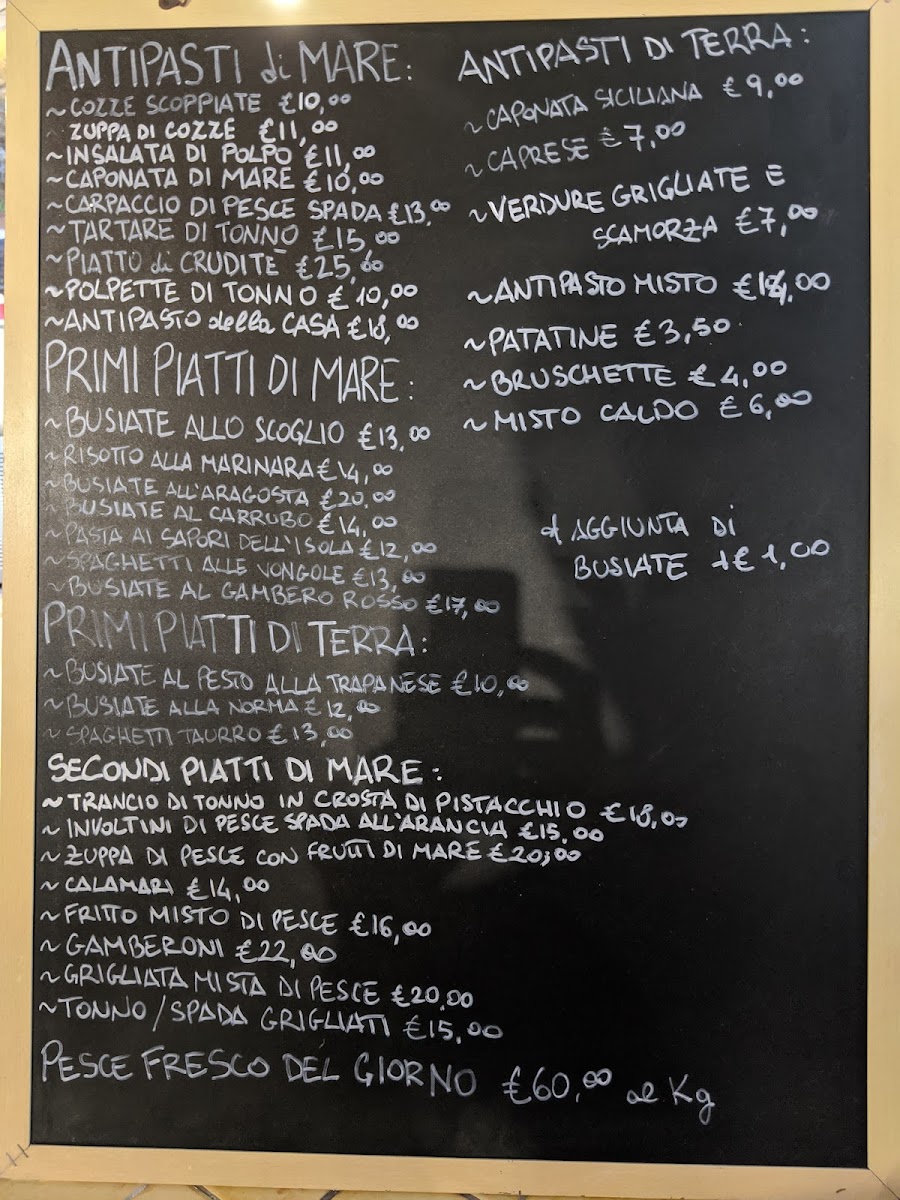 ANTIPASTI di MARE:
~COZZE SCOPPIATE €10,00
ZUPPA DI COZZE €11,00
~INSALATA DI POLPO €11,00
~CAPONATA DI MARE €10,00
~CARPACCIO DI PESCE SPADA €13,00
~TARTARE DI TONNO €15,00
~PIATTO di CRUDITE' €25,00
~POLPETTE DI TONNO €10,00
~ANTIPASTO della CASA €18,00
PRIMI PIATTI DI MARE:
~BUSIATE ALLO SCOGLIO €13,00
~RISOTTO ALLA MARINARA €14,00
~BUSIATE ALL'ARAGOSTA €20,00
~BUSIATE AL CARRUBO €14,00
~PASTA AI SAPORI DELL'ISOLA €12,00
~SPAGHETTI ALLE VONGOLE €13,00
~BUSIATE AL GAMBERO ROSSO €17,00
PRIMI PIATTI DI TERRA:
~BUSIATE AL PESTO ALLA TRAPANESE €10,00
~BUSIATE ALLA NORMA €12,00
~SPAGHETTI TAURRO €13,00
SECONDI PIATTI DI MARE:
~TRANCIO DI TONNO IN CROSTA DI PISTACCHIO €18,00
~INVOLTINI DI PESCE SPADA ALL'ARANCIA €15,00
~ZUPPA DI PESCE CON FRUTTI DI MARE €20,00
~CALAMARI €14,00
~FRITTO MISTO DI PESCE €16,00
~GAMBERONI €22,00
~GRIGLIATA MISTA DI PESCE €20,00
~TONNO/SPADA GRIGLIATI €15,00
PESCE FRESCO DEL GIORNO €60,00 al Kg
ANTIPASTI DI TERRA:
~CAPONATA SICILIANA €9,00
~CAPRESE €7,00
~VERDURE GRIGLIATE E
SCAMORZA €7,00
~ANTIPASTO MISTO
~PATATINE €3,50
~BRUSCHETTE €4,00
~MISTO CALDO €6,00
AGGIUNTA DI
BUSIATE +€1,00